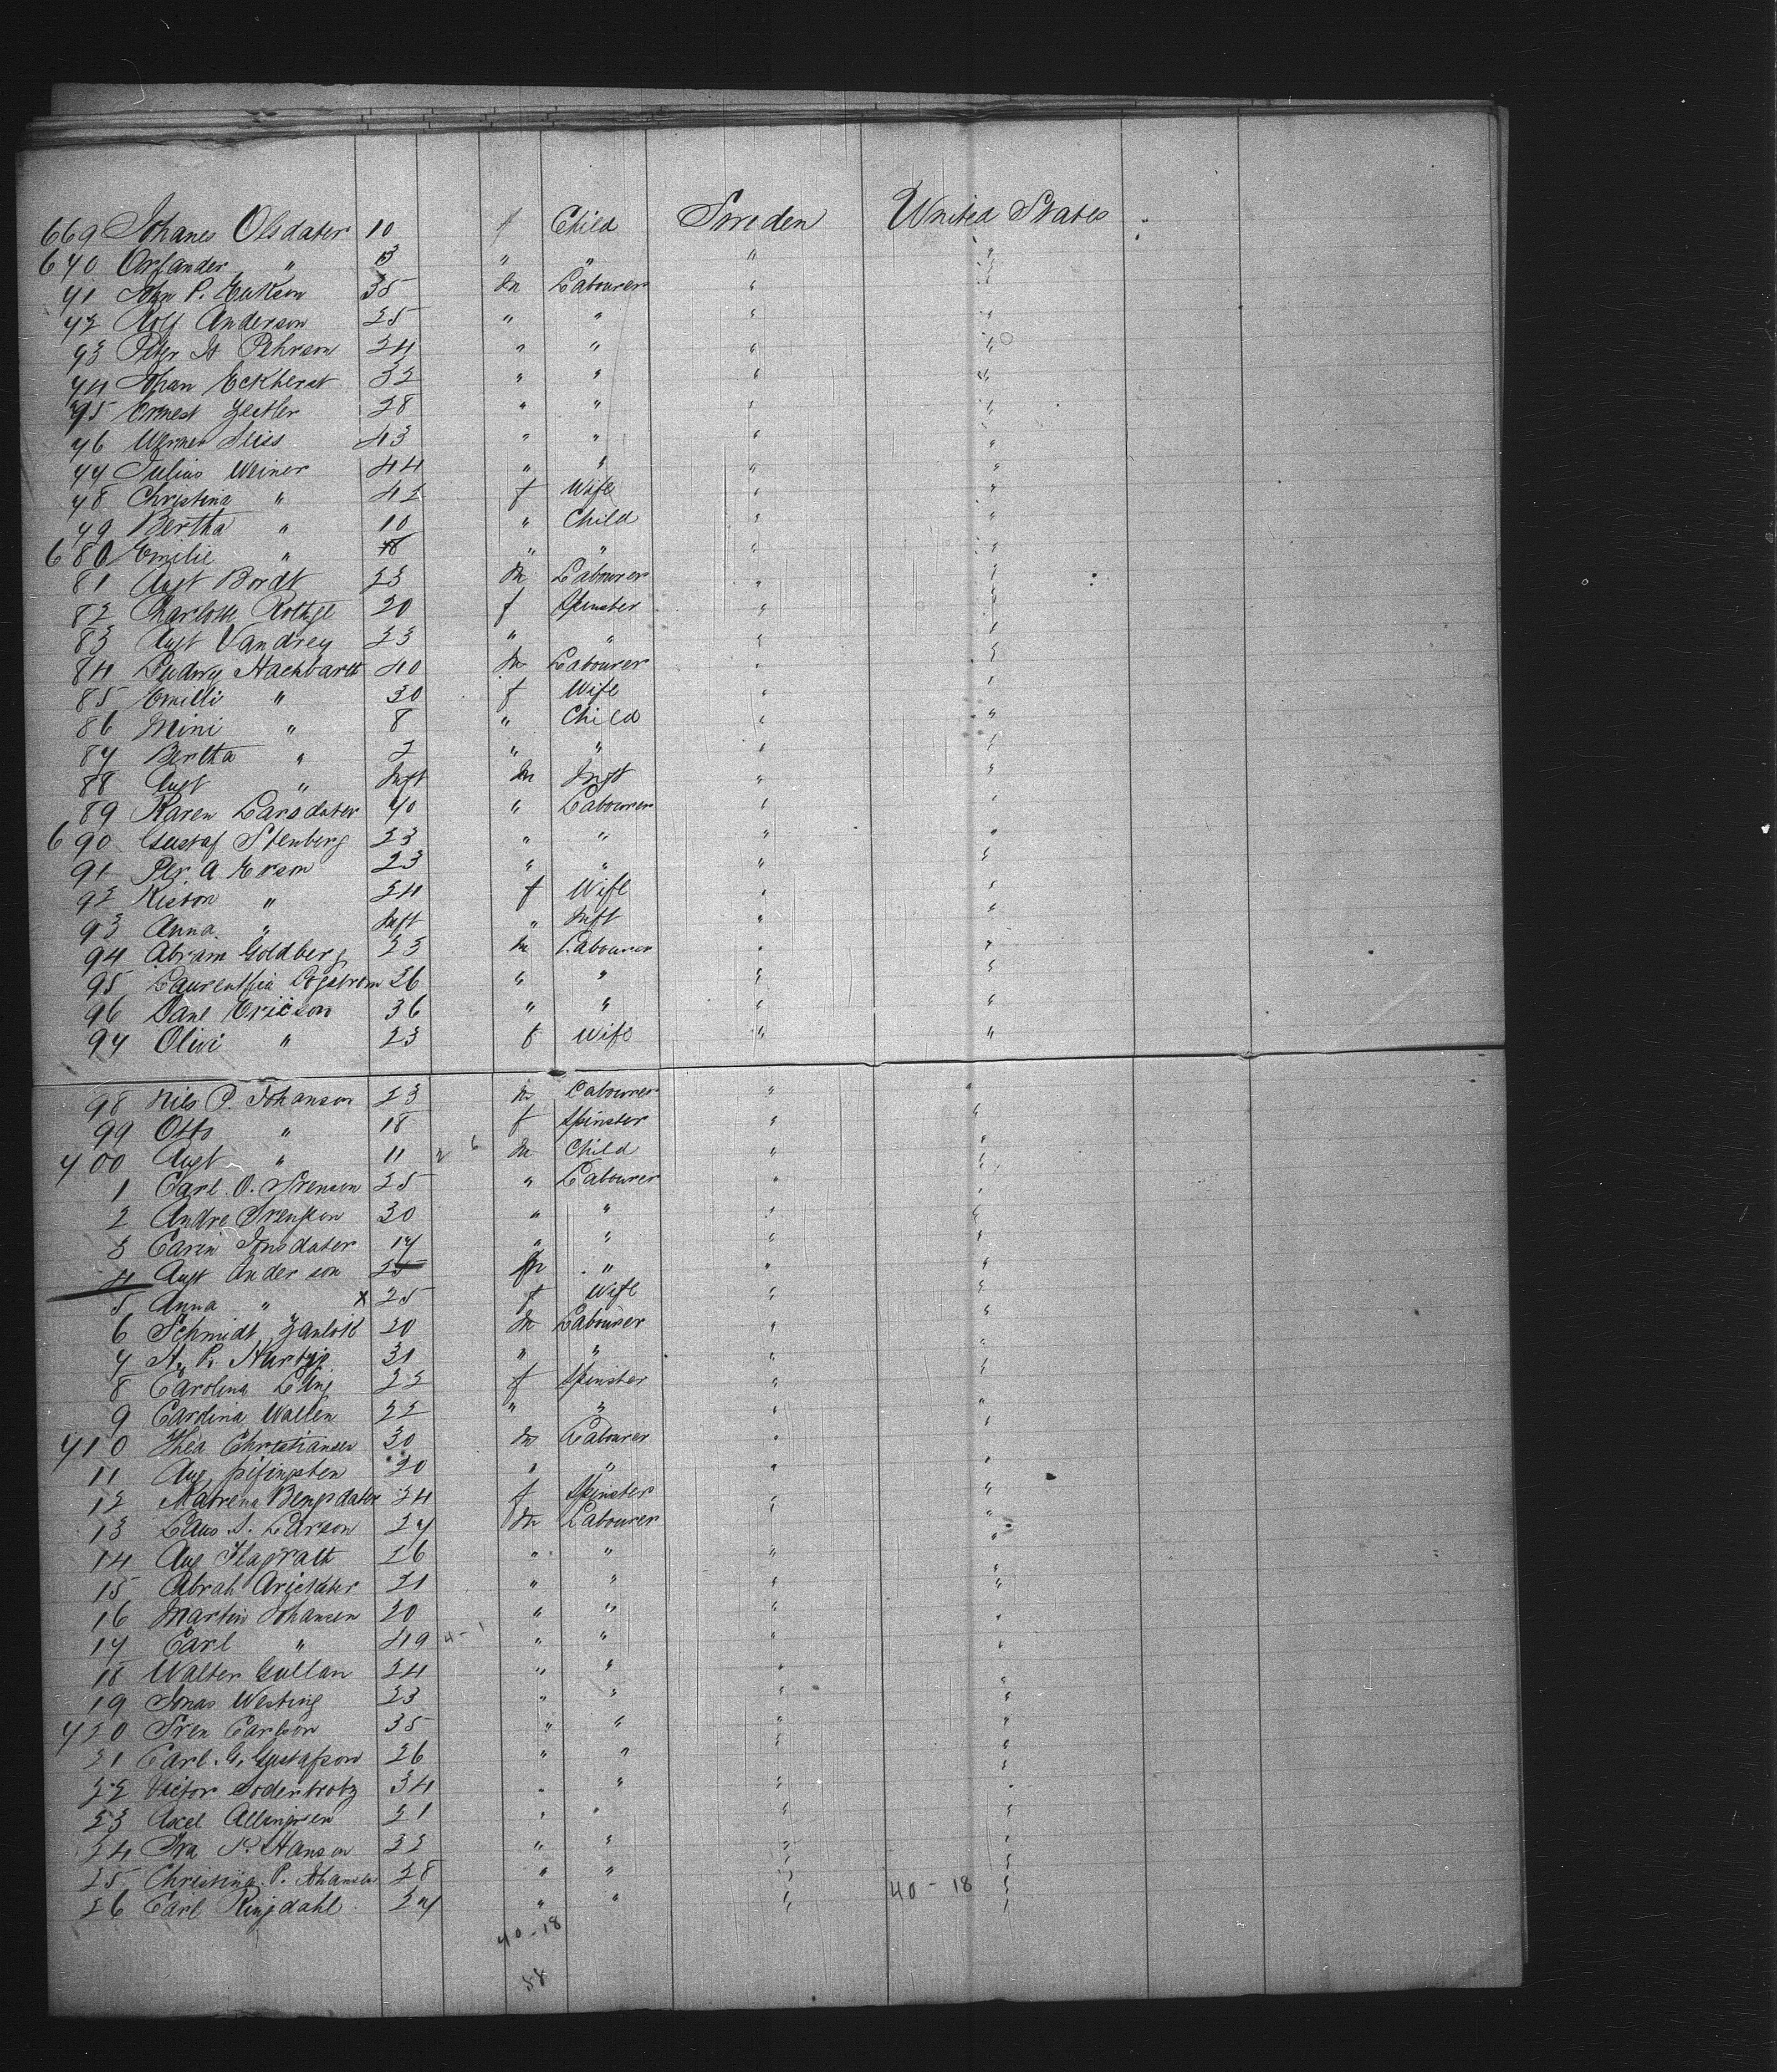 669 Johanes Olsdater 10 f Child Sweden United States
670 Orfander " 3 " " " "
71 John P. Erikson 35 m Labourer " "
72 Rolf Anderson 25 " " " "
73 Peter A Pehrson 24 " " " "
74 Johan Eckherst 32 " " " "
75 Ernest Zeitler 28 " " " "
76 Werner 43 " " " "
77 Julius Weiner 44 " " " "
78 Christina " 42 f Wife " "
79 Bertha " 10 " Child " "
680 Emilie " 8 " " " "
81 Aust Bordt 23 m Labourer " "
82 Charlotte Rothge 20 f Spinster " "
83 Aust Vandrey 23 " " " "
84 Ludwig Hachbarth 40 m Labourer " "
85 Emilli " 30 f Wife " "
86 Mini " 8 " Child " "
87 Bertha " 2 " " " "
88 Aust " Inft m Inft " "
89 Karen Larsdater 70 " Labourer " "
690 Gustaf Stenberg 23 " " " "
91 Per A Erson 23 " " " "
92 Kiston " 24 f Wife " "
93 Anna " Inft " Inft " "
94 Abram Goldberg 25 m Labourer " "
95 Laurentfia 26 " " " "
96 Danl Ericson 36 " " " "
97 Olivi " 23 f Wife " "
98 Nils P. Johanson 23 m Labourer " "
99 Otto " 18 f Spinster " "
700 Augt " 11 m Child " "
1 Carl O. Svenson 25 " Labourer " "
2 Andre Svenson 30 " " " "
3 Carin Jonsdater 17 " " " "
4 Aust Anderson 25 m " " "
5 Anna " x 25 f Wife " "
6 Schmidt 20 m Labourer " "
7 A. P. 31 " " " "
8 Carolina Lang 22 f Spinster " "
9 Cardina Wallen 22 " " " "
710 Thea Christiansen 30 m Labourer " "
11 Aug 20 " " " "
12 Matrena Bengsdater 24 f Spinster " "
13 Laus S. Larson 27 m Labourer " "
14 Aug Flagrath 26 " " " "
15 Abrah 21 " " " "
16 Martin Johansen 20 " " " "
17 Carl " 49 " " " "
18 Walter Gullan 24 " " " "
19 Jonas Westing 23 " " " "
720 Sven Carlson 35 " " " "
21 Carl G. Gustafson 26 " " " "
22 Victor 34 " " " "
23 Axel Allingsen 21 " " " "
24 Ira P. Hanson 22 " " " "
25 Christina P. Johansen 28 " " " "
26 Carl Ringdahl 27 " " 40-18 "
40-18
58